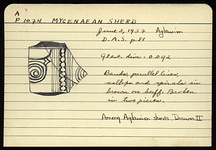 A
P 1074 MYCENAEAN SHERD
June 3, 1937
D.A.S. p.81
Gtest. dim.: 0.092
Bands, parallel lines,
scallops and spirals in
brown on buff. Broken
in two pieces.
Among Agkinar Sherds Drawer II